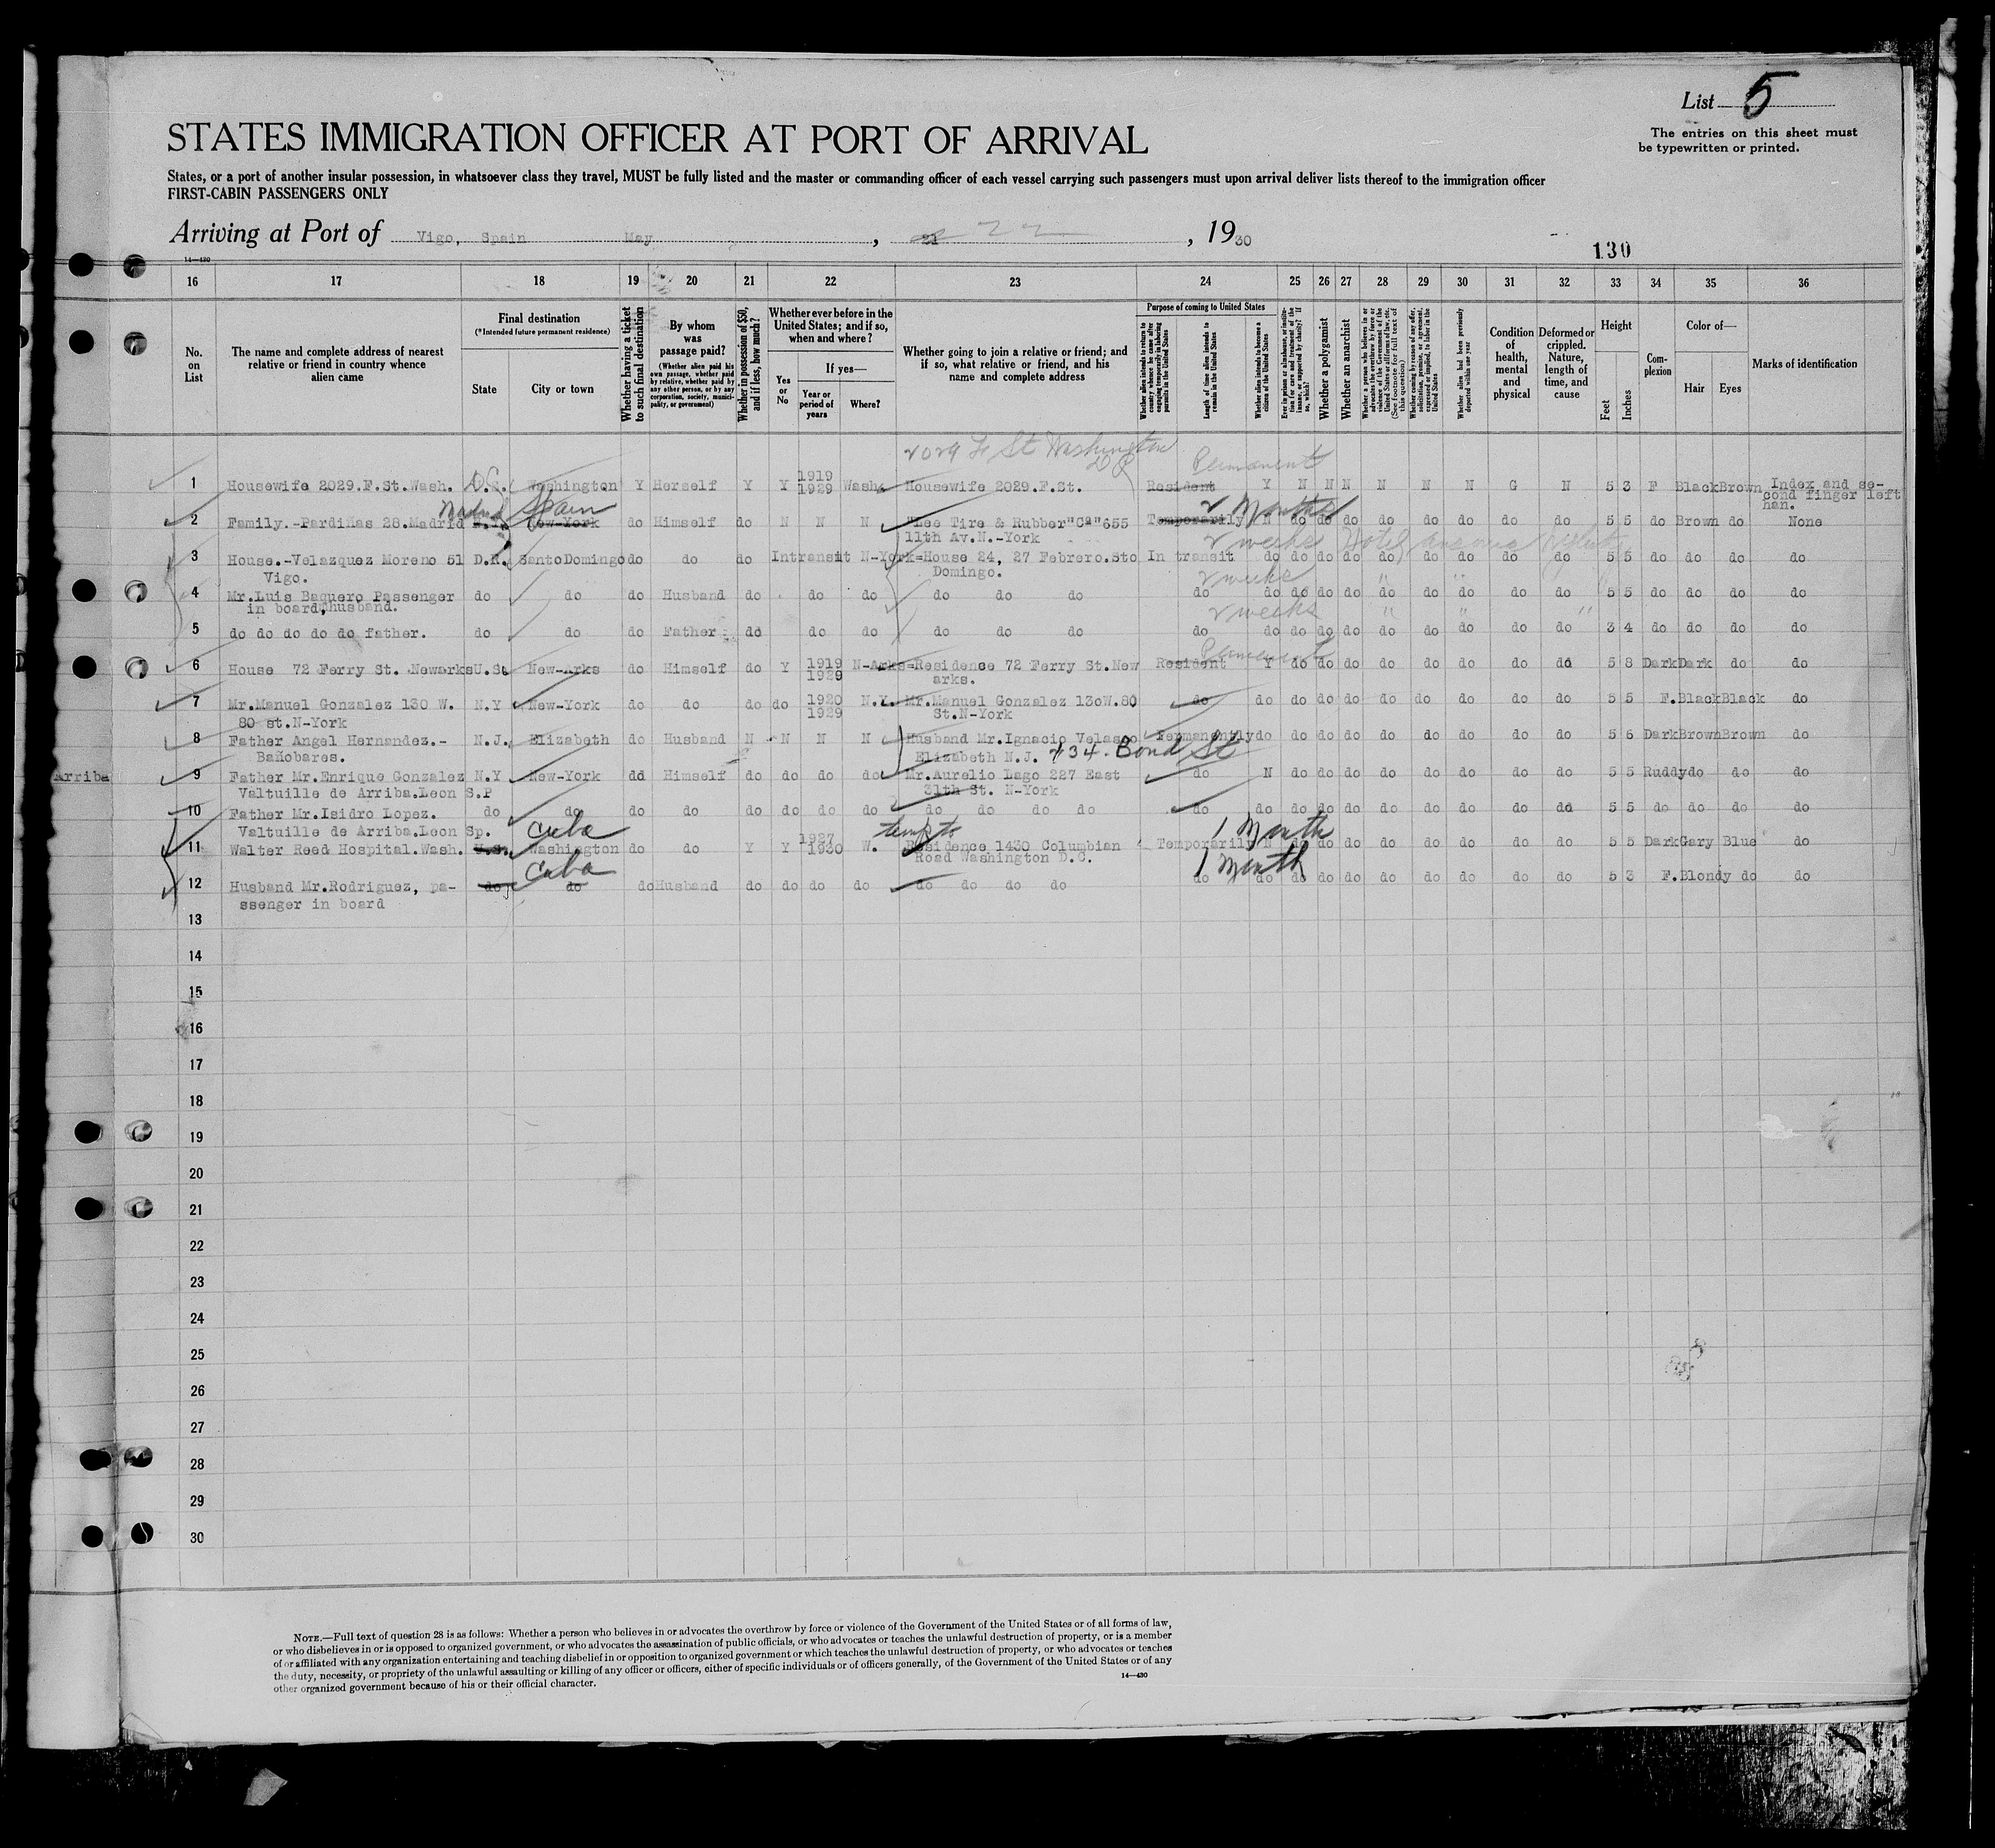 List 5
The entries on this sheet must
be typewritten or printed.
STATES IMMIGRATION OFFICER AT PORT OF ARRIVAL
States, or a port of another insular possession, in whatsoever class they travel, MUST be fully listed and the master or commanding officer of each vessel carrying such passengers must upon arrival deliver lists thereof to the immigration officer
FIRST-CABIN PASSENGERS ONLY
Arriving at Port of Vigo, Spain May , 21 22 , 1930
14—430
130
16 17 18 19 20 21 22 23 24 25 26 27 28 29 30 31 32 33 34 35 36
No. on List
The name and complete address of nearest relative or friend in country whence alien came
Final destination
(*Intended future permanent residence)
State
City or town
Whether having a ticket to such final destination
By whom was passage paid?
(Whether alien paid his own passage, whether paid by relative, whether paid by any other person, or by any corporation, society, municipality, or government)
Whether in possession of $50, and if less, how much?
Whether ever before in the United States; and if so, when and where?
Yes or No
If yes—
Year or period of years
Where?
Whether going to join a relative or friend; and if so, what relative or friend, and his name and complete address
Purpose of coming to United States
Whether alien intends to return to country whence he came after engaging temporarily in laboring pursuits in the United States
Length of time alien intends to remain in the United States
Whether alien intends to become a citizen of the United States
Ever in prison or almshouse, or institution for care and treatment of the insane, or supported by charity? If so, which?
Whether a polygamist
Whether an anarchist
Whether a person who believes in or advocates the overthrow by force or violence of the Government of the United States or all forms of law, etc. (See footnote for full text of this question)
Whether coming by reason of any offer, solicitation, promise, or agreement, expressed or implied, to labor in the United States
Whether alien has been previously deported within one year
Condition of health, mental and physical
Deformed or crippled. Nature, length of time, and cause
Height
Feet
Inches
Complexion
Color of—
Hair
Eyes
Marks of identification
2029 F St Washington
D C
Permanent
1 Housewife 2029.F.St.Wash. D.C. Washington Y Herself Y Y 1919 1929 Wash. Housewife 2029.F.St. Resident Y N N N N N N G N 5 3 F Black Brown Index and se-
cond finger left
han.
Madrid Spain
2 months
2 Family.-Pardiñas 28.Madrid N.Y. New-York do Himself do N N N "Lee Tire & Rubber"Cª"655 Temporarily N do do do do do do do do 5 5 do Brown do None
11th Av.N.-York
2 weeks Hotel
3 House.-Velazquez Moreno 51 D.R. SantoDomingo do do do Intransit N-York=House 24, 27 Febrero.Sto In transit do do do do do do do do do 5 5 do do do do
Vigo. Domingo.
2 weeks " "
4 Mr.Luis Baquero Passenger do do do Husband do do do do do do do do do do do do do do do do 5 5 do do do do
in board,husband.
2 weeks " " "
5 do do do do do father. do do do Father do do do do do do do do do do do do do do do do 3 4 do do do do
Permanent
6 House 72 Ferry St. Newarks U.St New-Arks do Himself do Y 1919 1929 N-Arks=Residence 72 Ferry St.New Resident Y do do do do do do do do 5 8 Dark Dark do do
arks.
7 Mr.Manuel Gonzalez 130 W. N.Y New-York do do do do 1920 1929 N.Y. Mr.Manuel Gonzalez 130W.80 do do do do do do do do do do 5 5 F. Black Black do
80 st.N-York St.N-York
8 Father Angel Hernandez.- N.J. Elizabeth do Husband N N N N Husband Mr.Ignacio Velasco Permanently do do do do do do do do do 5 6 Dark Brown Brown do
Bañobares. Elizabeth N.J. 734. Bond St
Arriba
9 Father Mr.Enrique Gonzalez N.Y New-York dd Himself do do do do Mr.Aurelio Lago 227 East do N do do do do do do do do 5 5 Ruddy do do do
Valtuille de Arriba.Leon S.P 31th St. N-York
10 Father Mr.Isidro Lopez. do do do do do do do do do do do do do do do do do do do do do do do 5 5 do do do do
Valtuille de Arriba.Leon Sp.
Cuba 1 Month
11 Walter Reed Hospital.Wash. U.S. Washington do do Y Y 1927 1930 W. Residence 1430 Columbian Temporarily N do do do do do do do do 5 5 Dark Gary Blue do
Road Washington D.C.
Cuba 1 Month
12 Husband Mr.Rodriguez, pa- do do do Husband do do do do do do do do do do do do do do do do do do 5 3 F. Blondy do do
ssenger in board
13
14
15
16
17
18
19
20
21
22
23
24
25
26
27
28
29
30
NOTE.—Full text of question 28 is as follows: Whether a person who believes in or advocates the overthrow by force or violence of the Government of the United States or of all forms of law,
or who disbelieves in or is opposed to organized government, or who advocates the assassination of public officials, or who advocates or teaches the unlawful destruction of property, or is a member
of or affiliated with any organization entertaining and teaching disbelief in or opposition to organized government or which teaches the unlawful destruction of property, or who advocates or teaches
the duty, necessity, or propriety of the unlawful assaulting or killing of any officer or officers, either of specific individuals or of officers generally, of the Government of the United States or of any
other organized government because of his or their official character.
14—430